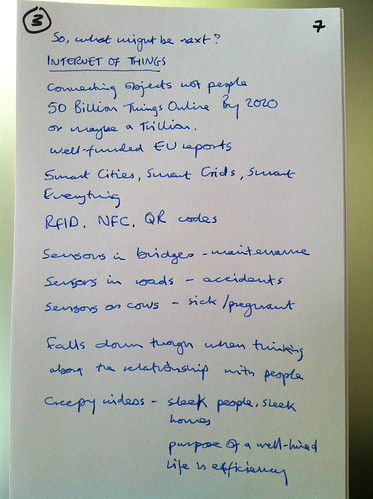 3
7
So, what might be next?
INTERNET OF THINGS
Connecting objects not people
50 Billion Things Online By 2020
or maybe a Trillion.
Well-funded EU reports
Smart Cities, Smart Grids, Smart
Everything
RFID, NFC, QR codes
Sensors in bridges - maintenance
Sensors in roads - accidents
Sensors on cows - sick/pregnant
Falls down though when thinking
about the relationship with people
Creepy videos - sleek people, sleek
homes
purpose of a well-lived
life is efficiency